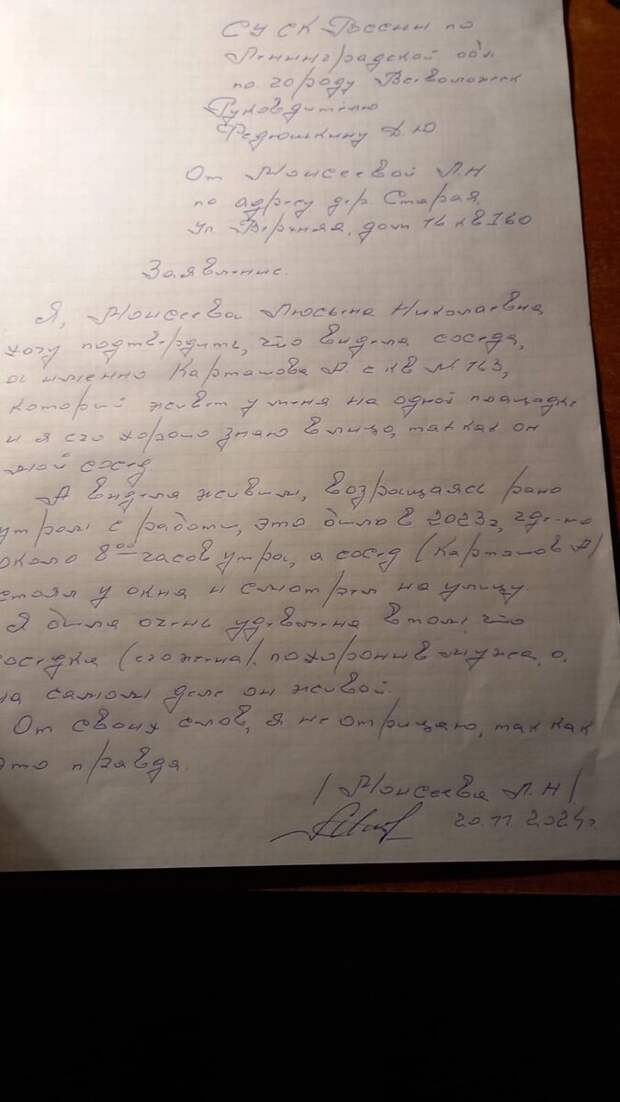 СУ СК России по
Ленинградской обл
по городу Всеволожск
Руководителю
Редюшкину Д.Ю
От Моисеевой Л.Н
по адресу дер. Старая,
ул Верхняя, дом 16 кв 160
Заявление.
Я, Моисеева Люсьена Николаевна
хочу подтвердить, что видела соседа,
а именно Карташова А с кв № 163,
который живет у меня на одной площадке
и я его хорошо знаю в лицо, так как он
мой сосед
А видела живым, возращаясь рано
утром с работы, это было в 2023г, где-то
около 8 00 часов утра, а сосед (Карташов А)
стоял у окна и смотрел на улицу.
Я была очень удевлена в том, что
соседка (его жена), похоронив мужа, а,
на самом деле он живой.
От своих слов, я не отрицаю, так как
это правда.
/Моисеева Л.Н/
20.11.2024г.